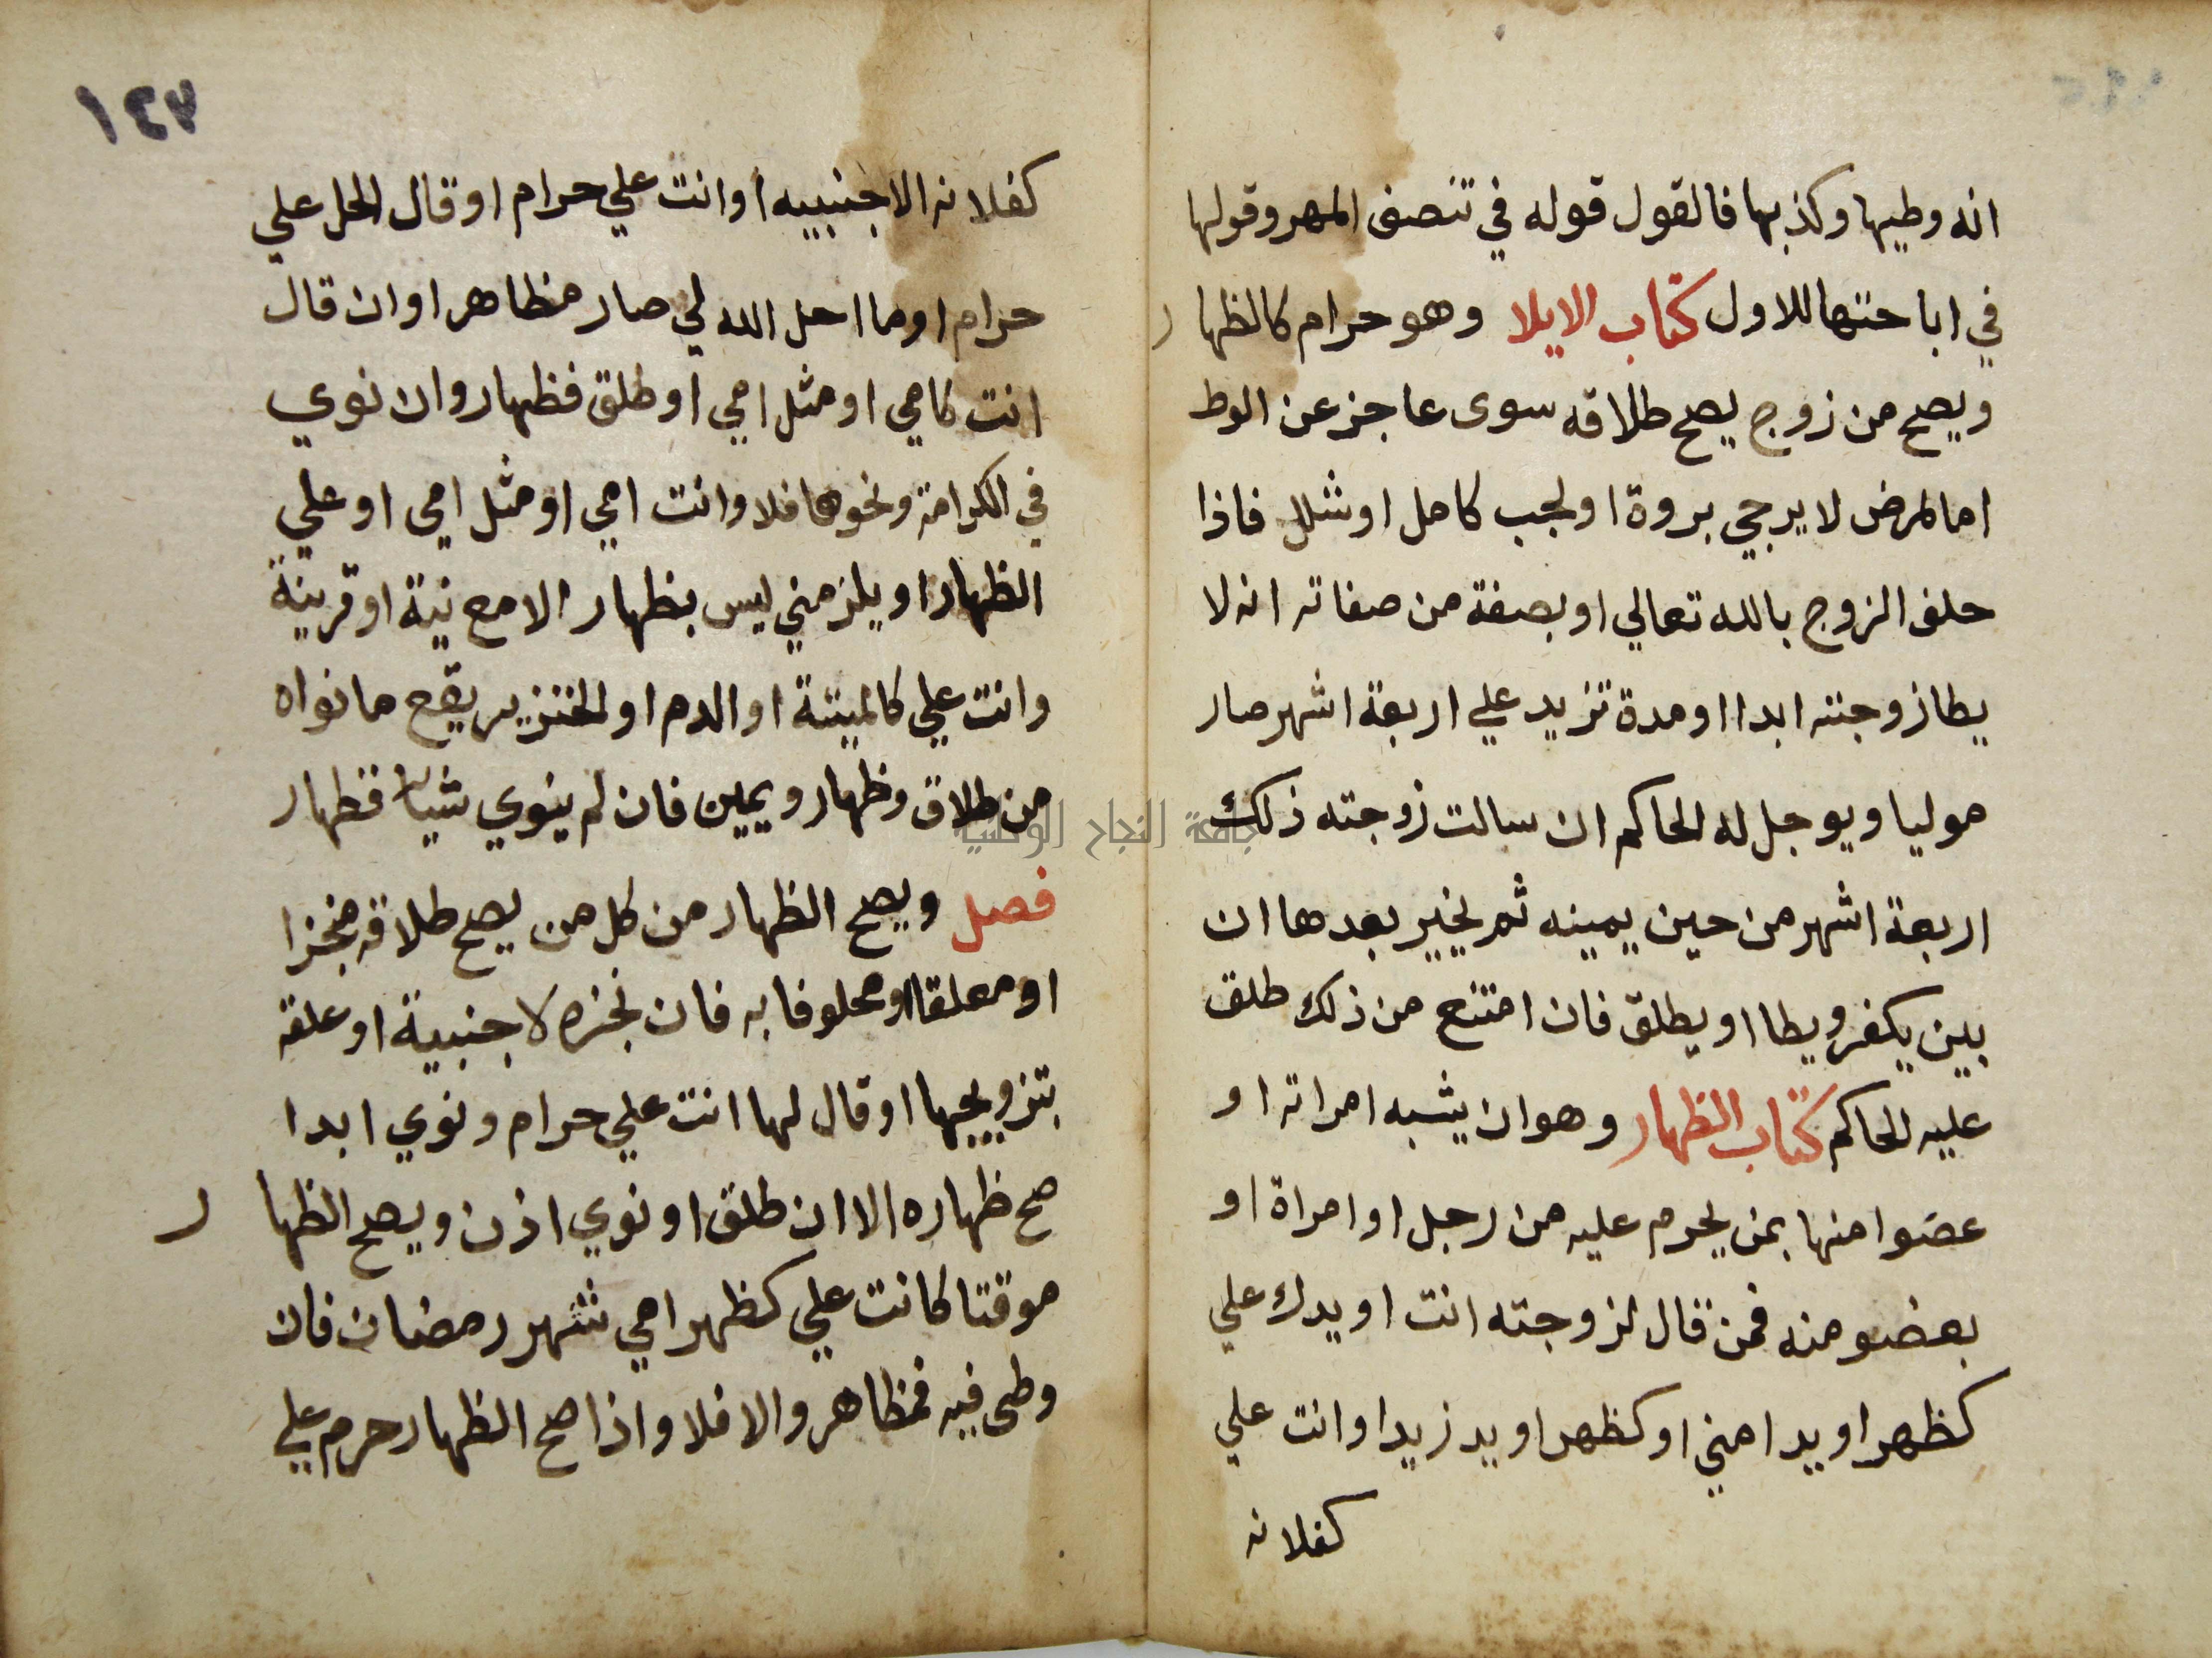 انه وطيها وكذبها فالقول قوله في تنصف المهر وقولها
في اباحتها للاول كتاب الايلا وهو حرام كالظهار
ويصح من زوج يصح طلاقه سوى عاجز عن الوط
اما لمرض لا يرجي بروة او لجب كامل او شلل فاذا
حلف الزوج بالله تعالي او بصفة من صفاته انه لا
يطا زوجته ابدا او مدة تزيد علي اربعة اشهر صار
موليا ويوجل له الحاكم ان سالت زوجته ذلك
اربعة اشهر من حين يمينه ثم يخير بعدها ان
بين يكفر ويطا او يطلق فان امتنع من ذلك طلق
عليه الحاكم كتاب الظهار وهو ان يشبه امراته او
عضوا منها بمن يحرم عليه من رجل او امراة او
بعضو منه فمن قال لزوجته انت او يدك علي
كظهر او يد امني او كظهر او يد زيد او انت علي
كفلانه
١٤٧
كفلانه الاجنبيه او انت علي حرام او قال الحل علي
حرام او ما احل الله لي صار مظاهرا وان قال
انت كامي او مثل امي او طلق فظهار وان نوي
في الكرامة ونحوها فلا وانت امي او مثل امي او علي
الظهار او يلزمني ليس بظهار الا مع نية او قرينة
وانت علي كالميتة او الدم او الخنزير يقع ما نواه
من طلاق وظهار ويمين فان لم ينوي شيا فظهار
فصل ويصح الظهار من كل من يصح طلاقه منجزا
او معلقا او محلوفا به فان نجزه لاجنبية او علقه
بتزويجها او قال لها انت علي حرام ونوي ابدا
صح ظهاره الا ان طلق او نوي اذن ويصح الظهار
موقتا كانت علي كظهر امي شهر رمضان فان
وطى فيه فمظاهر والا فلا واذا صح الظهار حرم علي
جامعة النجاح الوطنية